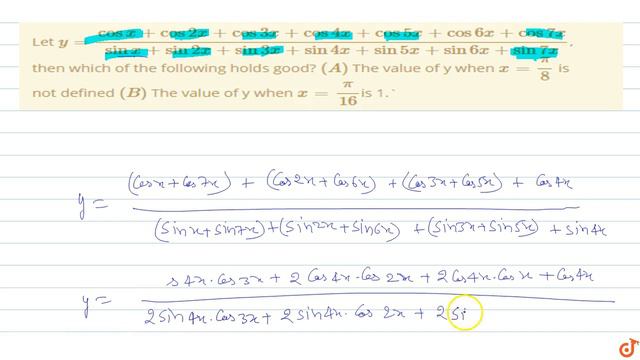 Let y = (cos x + cos 2x + cos 3x + cos 4x + cos 5x + cos 6x + cos 7x) / (sin x + sin 2x + sin 3x + sin 4x + sin 5x + sin 6x + sin 7x),
then which of the following holds good? (A) The value of y when x = π/8 is
not defined (B) The value of y when x = π/16 is 1.`
y = ((Cosx + Cos7x) + (Cos2x + Cos6x) + (Cos3x + Cos5x) + Cos4x) / ((Sinx + Sin7x) + (Sin2x + Sin6x) + (Sin3x + Sin5x) + Sin4x)
y = (s4x·Cos3x + 2Cos4x·Cos2x + 2Cos4x·Cosx + Cos4x) / (2Sin4x·Cos3x + 2Sin4x·Cos2x + 2Si
doubtnut